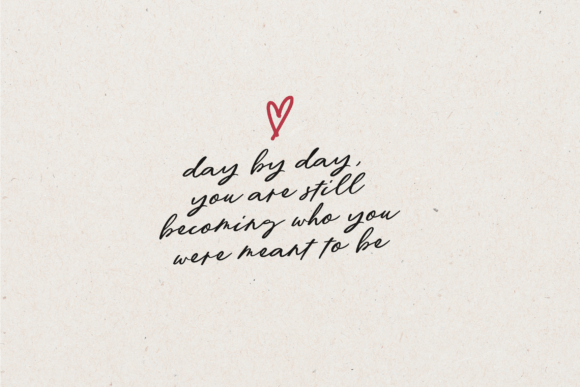 day by day,
you are still
becoming who you
were meant to be